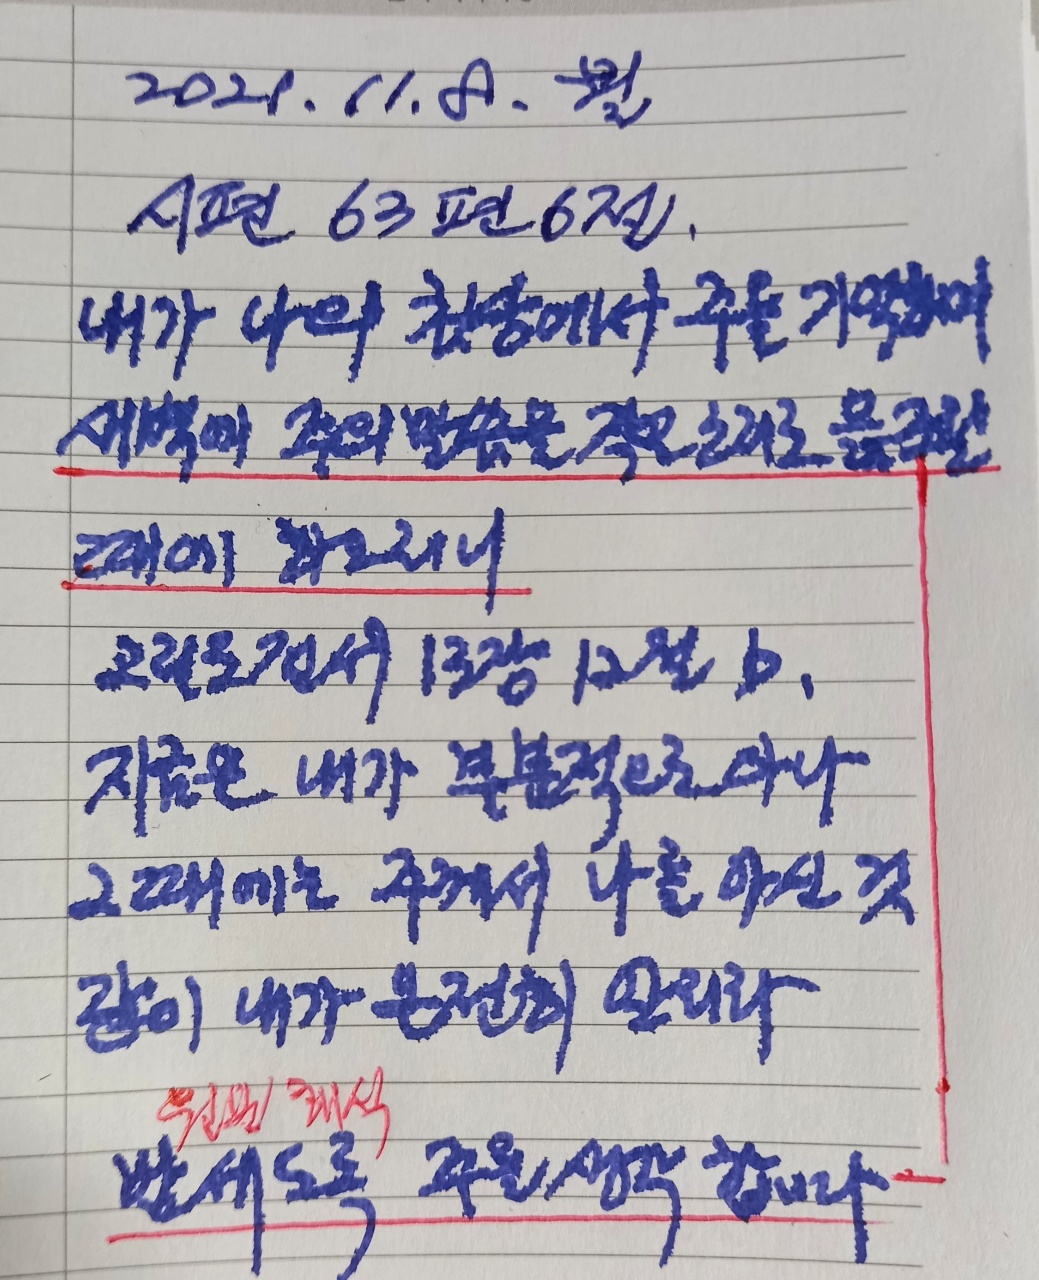 2021. 11. 8. 월
시편 63편 6절.
내가 나의 침상에서 주를 기억하며
새벽에 주의 말씀을 작은 소리로 읊조릴
때에 하오리니
고린도전서 13장 12절 b.
지금은 내가 부분적으로 아나
그 때에는 주께서 나를 아신 것
같이 내가 온전히 알리라
원문 해석
밤새도록 주를 생각합니다